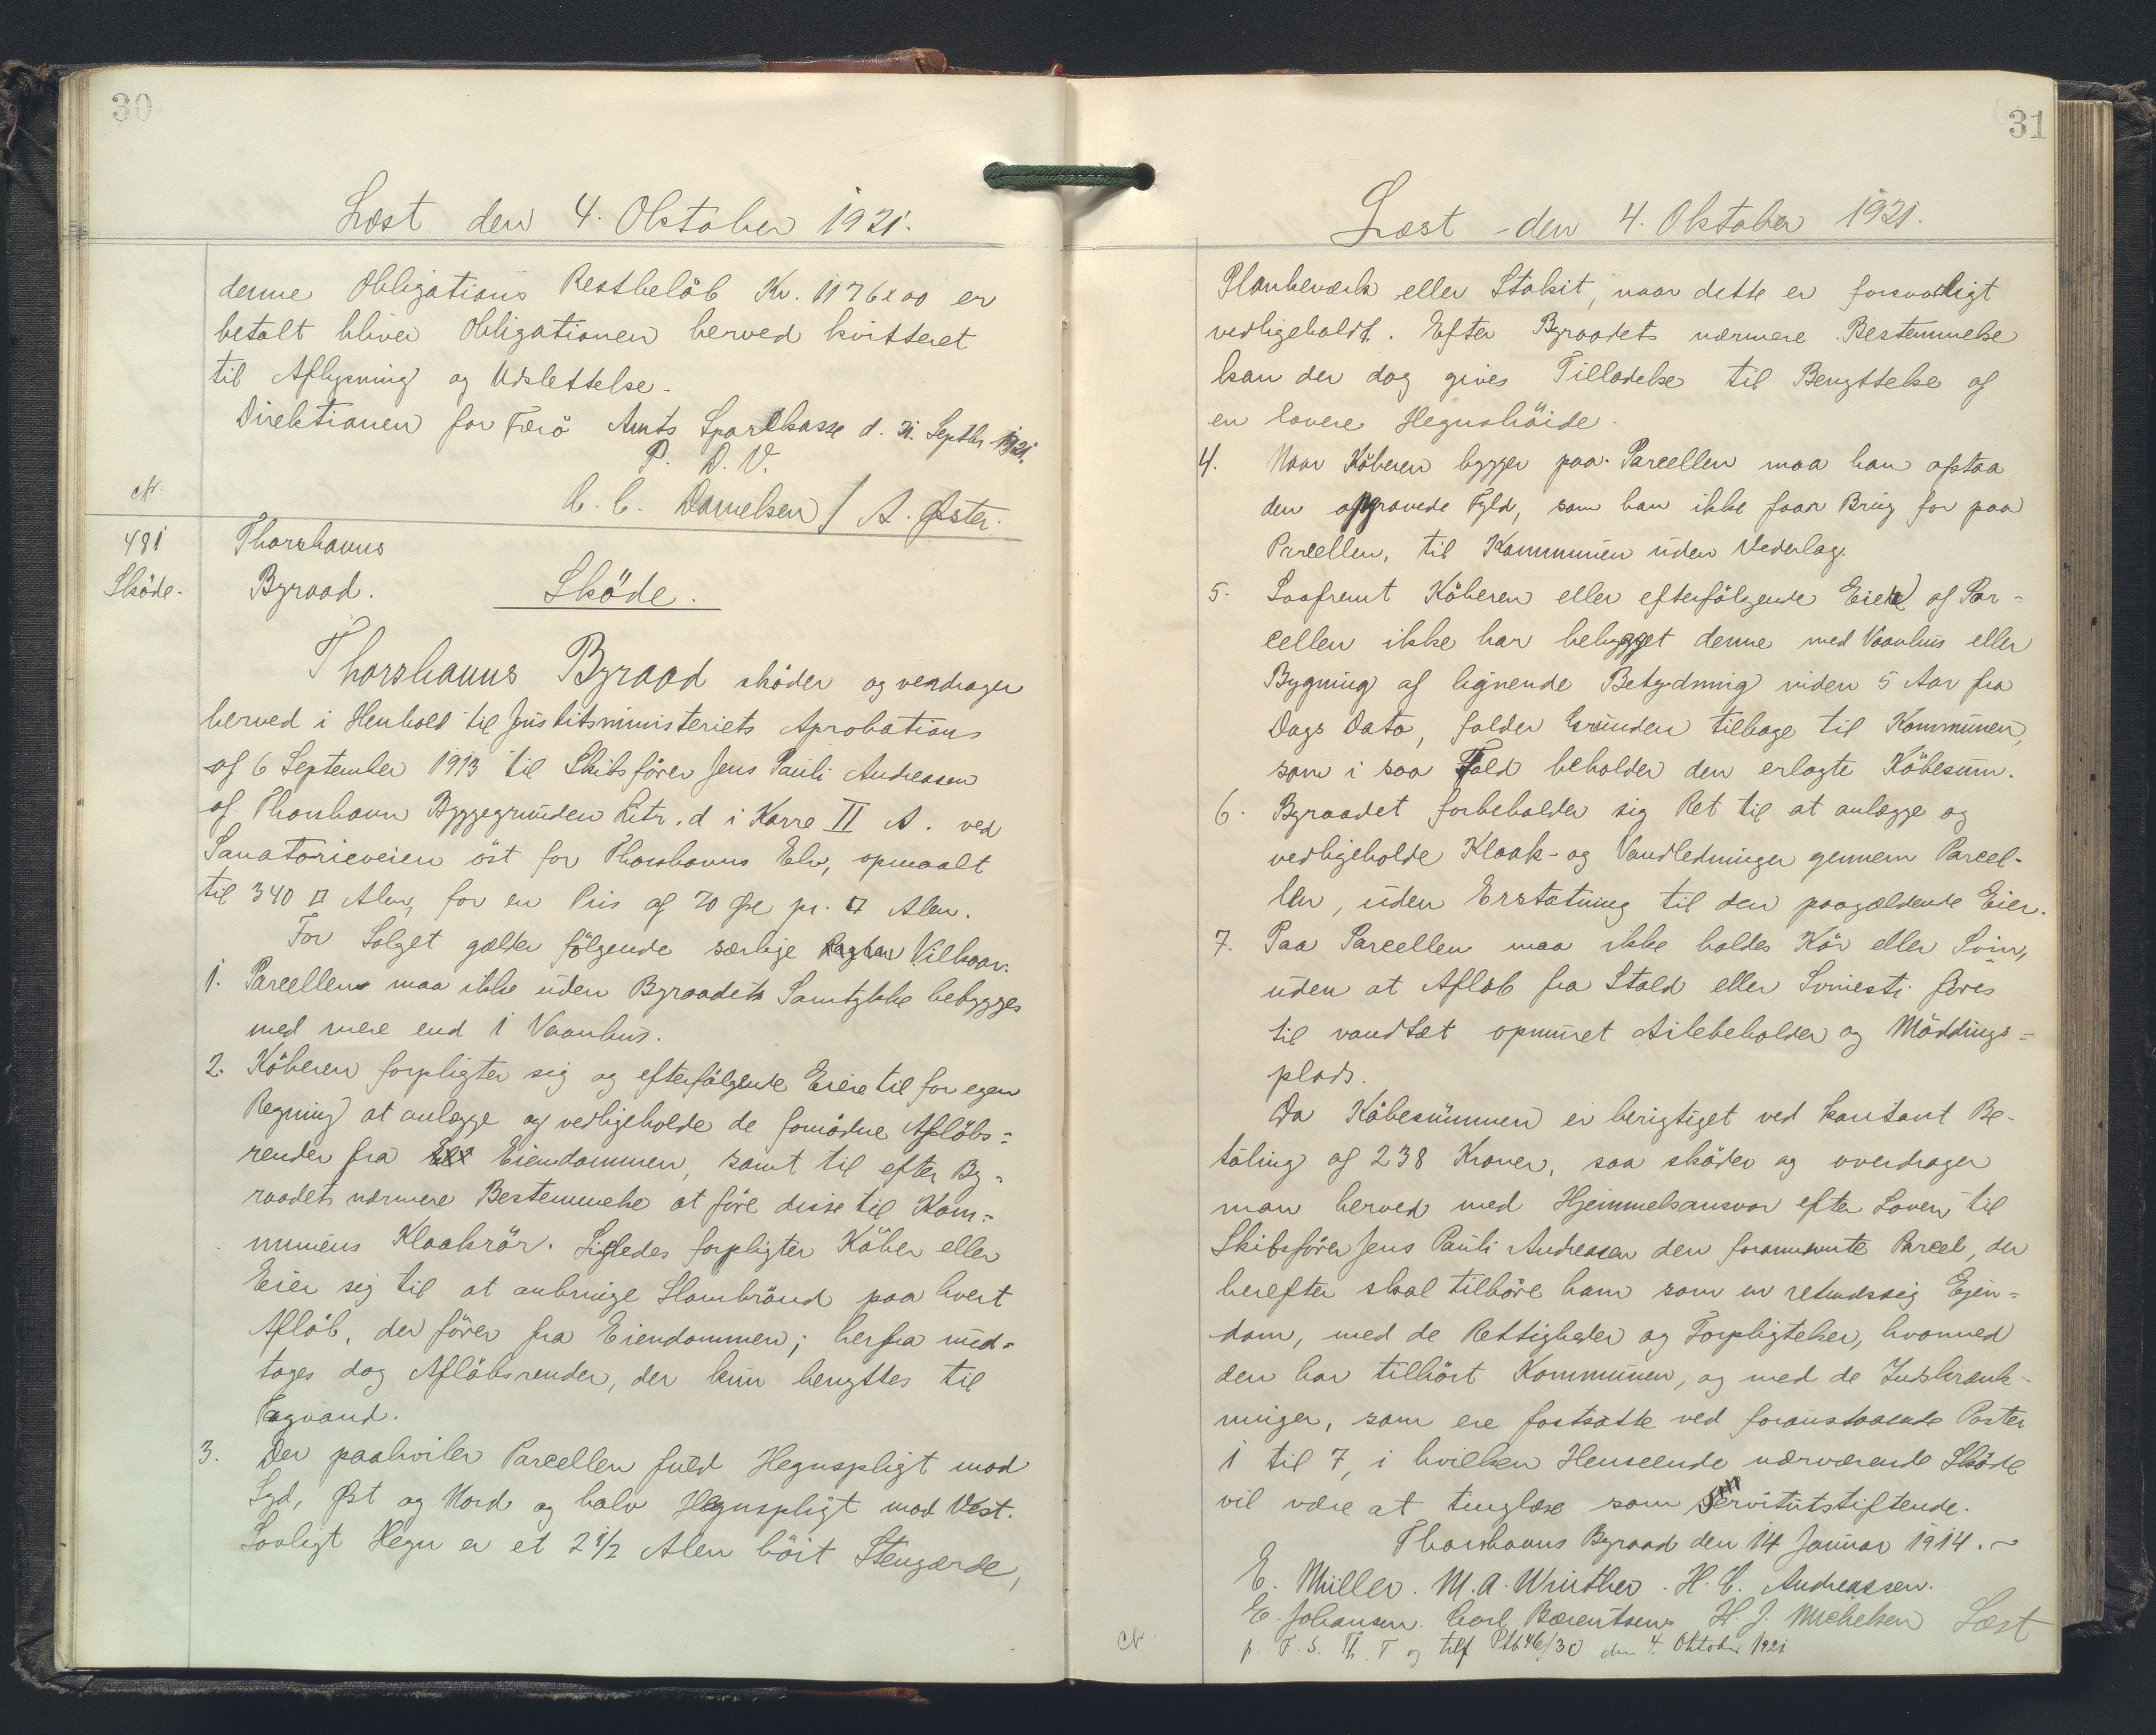 30
Læst den 4. Oktober 1921.
denne Obligations Restbelöb Kr. 1176 x 00 er
betalt bliver Obligationen herved kvitteret
til Aflysning og Udslettelse.
Direktionen for Færö Amts Sparekasse d. 21. Septbr. 1921.
P. D. V.
C. C. Danielsen / A. Øster.
481
Sköde.
Thorshavns
Byraad.
Sköde.
Thorshavns Byraad sköder og overdrager
herved i Henhold til Justitsministeriets Aprobations
af 6 September 1913 til Skibsförer Jens Pauli Andreasen
af Thorshavn Byggegrunden Litr. d i Karre II A. ved
Sanatorieveien öst for Thorshavns Elv, opmaalt
til 340 □ Alen, for en Pris af 70 Øre pr. □ Alen.
For Salget gælder fölgende særlige Vilkaar:
1. Parcellen maa ikke uden Byraadets Samtykke bebygges
med mere end 1 Vaanhus.
2. Köberen forpligter sig og efterfölgende Eiere til for egen
Regning at anlægge og vedligeholde de fornödne Aflöbs=
render fra Eiendommen, samt til efter By=
raadets nærmere Bestemmelse at före disse til Kom=
munens Kloakrör. Ligledes forpligter Köber eller
Eier sig til at anbringe Slambrönd paa hvert
Aflöb, der förer fra Eiendommen; herfra und=
tages dog Aflöbsrender, der kun benyttes til
Tagvand.
3. Der paahviler Parcellen fuld Hegnspligt mod
Syd, Øst og Nord og halv Hegnspligt mod Vest.
Lovligt Hegn er et 2 1/2 Alen höit Stengærde,
31
Læst den 4. Oktober 1921.
Plankeværk eller Stakit, naar dette er forsvarligt
vedligeholdt. Efter Byraadets nærmere Bestemmelse
kan der dog gives Tilladelse til Benyttelse af
en lavere Hegnshöide.
4. Naar Köberen bygger paa Parcellen maa han afstaa
den opgravede Fyld, som han ikke faar Brug for paa
Parcellen, til Kommunen uden Vederlag.
5. Saafremt Köberen eller efterfölgende Eiere af Par=
cellen ikke har bebygget denne med Vaanhus eller
Bygning af lignende Betydning inden 5 Aar fra
Dags Dato, falder Grunden tilbage til Kommunen,
som i saa Fald beholder den erlagte Köbesum.
6. Byraadet forbeholder sig Ret til at anlægge og
vedligeholde Kloak- og Vandledninger gennem Parcel-
len, uden Erstatning til den paagældende Eier.
7. Paa Parcellen maa ikke holdes Kör eller Svin,
uden at Aflöb fra Stald eller Svinesti föres
til vandtæt opmuret Ailebeholder og Möddings=
plads.
Da Köbesummen er berigtiget ved kontant Be-
taling af 238 Kroner, saa sköder og overdrager
man herved med Hjemmelsansvar efter Loven til
Skibsförer Jens Pauli Andreasen den forannævnte Parcel, der
herefter skal tilhöre ham som en retmæssig Ejen=
dom, med de Rettigheder og Forpligtelser, hvormed
den har tilhört Kommunen, og med de Indskrænk-
ninger, som ere fastsatte ved foranstaaende Poster
1 til 7, i hvilken Henseende nærværende Sköde
vil være at tinglæse som Servitutstiftende.
Thorshavns Byraad den 14 Januar 1914.
E. Müller. M. A. Winther. H. C. Andreassen.
E. Johansen. Carl Bærentsen H. J. Michelsen Læst
p. T. S. Th. T og tilf Ptb 46/30 den 4. Oktober 1921